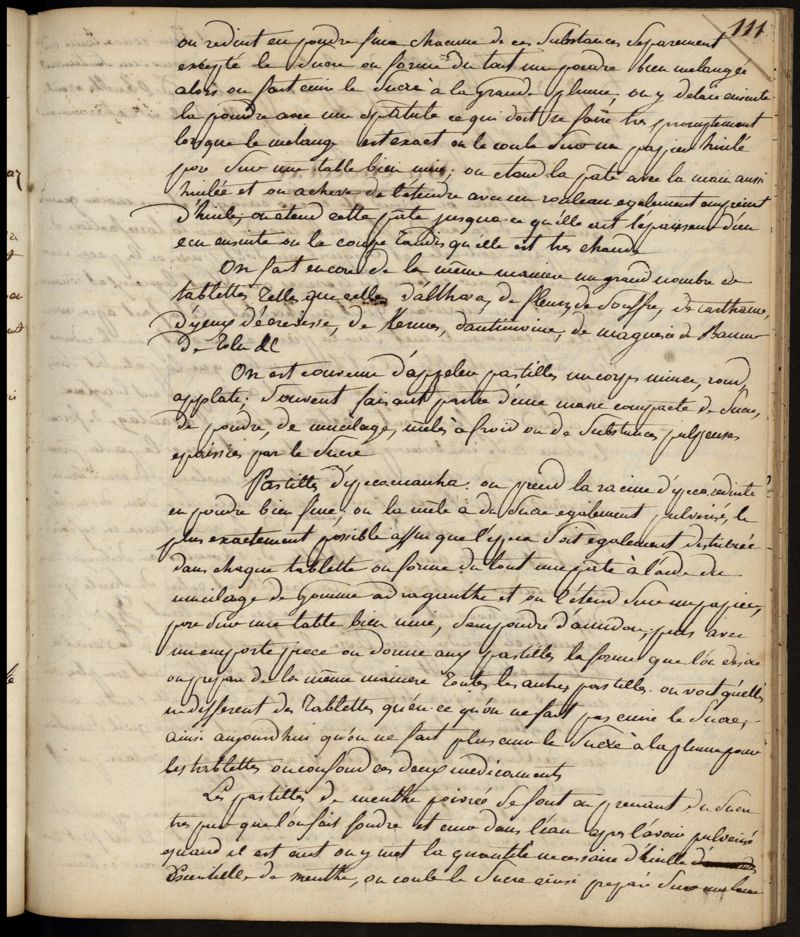 111
on reduit en poudre fine chacune de ces substances separement
excepté le sucre on forme du tout une poudre bien melangée
alors on fait cuire le sucre à la grande plume on y delaie ensuite
la poudre avec une espatule ce qui doit se faire tres promptement
lorsque le melange est exact on le coule sur un papier huilé
posé sur une table bien unie; on etend la pate avec la main aussi
huilée et on acheve de l'étendre avec un rouleau egalement empreint
d'huile, on étend cette pate jusqua ce qu'elle ait l'épaisseur d'un
ecu ensuite on la coupe tandis qu'elle est tres chaude
On fait encore de la même maniere un grand nombre de
tablettes telles que celles d'althaea, de fleurs de souffre, de carthame,
d'yeux d'écrevisse, de Kermes, d'antimoine, de magnesie de Baume
de Tolu &c
On est convenu d'appeler pastilles un corps mince, rond,
applati, souvent faisant partie d'une masse compacte de sucre,
de poudre, de mucilage, melés à froid ou de substances pulpeuses
epaissies par le sucre
Pastilles d'ypecacuanha. on prend la racine d'ypeca reduite
en poudre bien fine, on la mêle à du sucre egalement pulverisé, le
plus exactement possible affin que l'ypeca soit egalement distribuée
dans chaque tablette on forme du tout une pate à l'aide du
mucilage de gomme adraganthe et on l'étend sur un papier,
posé sur une table bien unie, saupoudré d'amidon, puis avec
un emporte piece on donne aux pastilles la forme que l'on desire
on prepare de la même maniere toutes les autres pastilles. on voit qu'elles
ne different des tablettes qu'en ce qu'on ne fait pas cuire le sucre,
ainsi aujourdhui qu'on ne fait plus cuire le sucre à la plume pour
les tablettes on confond ces deux medicaments
Les pastilles de menthe poivrée se font en prenant du sucre
tres pur que l'on fait fondre et cuire dans l'eau apres l'avoir pulverisé
quand il est cuit on y met la quantité necessaire d'huille
essentielle de menthe, on coule le sucre ainsi preparé sur une